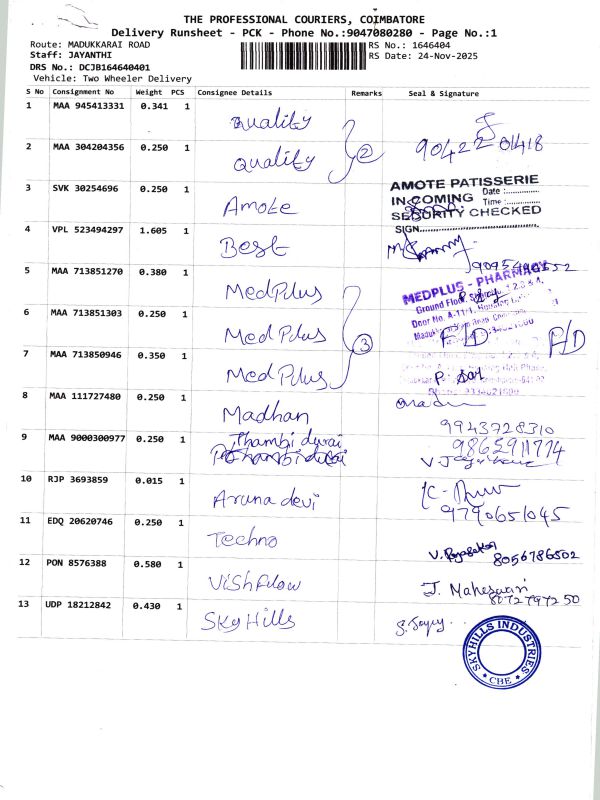 THE PROFESSIONAL COURIERS, COIMBATORE
Delivery Runsheet - PCK - Phone No.:9047080280 - Page No.:1
Route: MADUKKARAI ROAD
RS No.: 1646404
Staff: JAYANTHI
RS Date: 24-Nov-2025
DRS No.: DCJB164640401
Vehicle: Two Wheeler Delivery
S No Consignment No Weight PCS Consignee Details Remarks Seal & Signature
1 MAA 945413331 0.341 1 Quality
2 MAA 304204356 0.250 1 Quality 2 90422 01418
3 SVK 30254696 0.250 1 Amote
AMOTE PATISSERIE
IN COMING Date :
Time :
SECURITY CHECKED
SIGN
4 VPL 523494297 1.605 1 Best
5 MAA 713851270 0.380 1 MedPlus
MEDPLUS - PHARMACY
6 MAA 713851303 0.250 1 MedPlus F/D F/D
7 MAA 713850946 0.350 1 MedPlus 3
8 MAA 111727480 0.250 1 Madhan
9943728310
9 MAA 9000300977 0.250 1 Thambi durai
9865911774
10 RJP 3693859 0.015 1 Aruna devi
9790651045
11 EDQ 20620746 0.250 1 Techno
8056786502
12 PON 8576388 0.580 1 Vishflow J. Maheswari
8072797250
13 UDP 18212842 0.430 1 Sky Hills
SKYHILLS INDUSTRIES
CBE